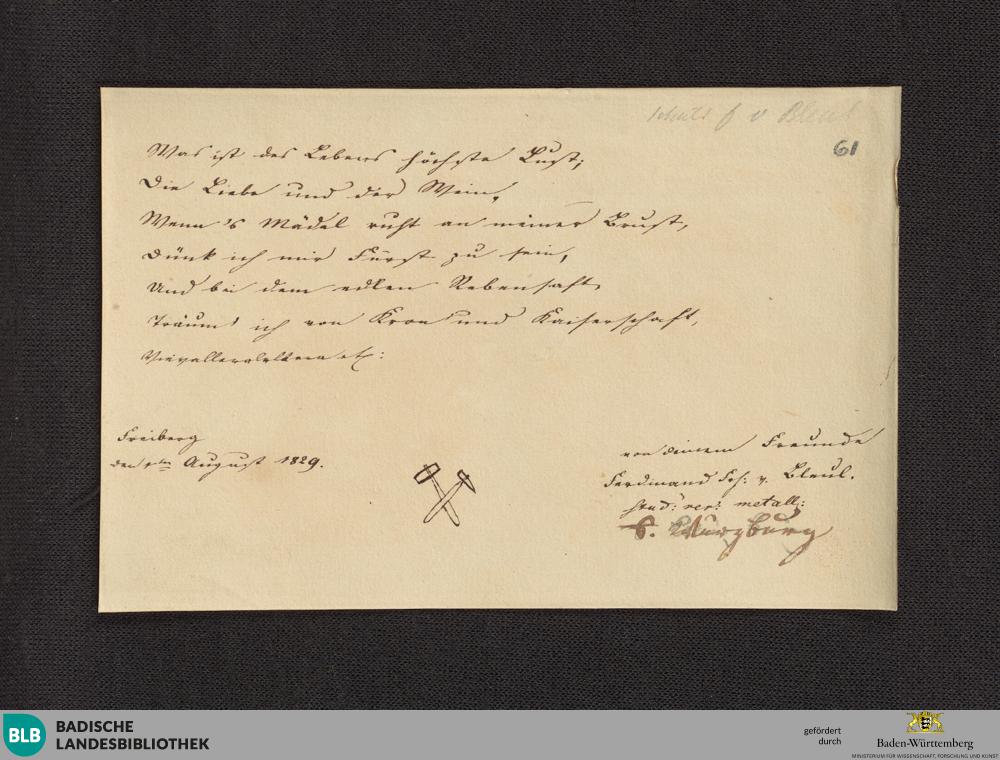 61
Was ist des Lebens höchste Lust;
Die Liebe und der Wein,
Wenn's Mädel ruht an meiner Brust,
Dünk ich mir Fürst zu sein,
Und bei dem edlen Rebensaft
Träum' ich von Kron' und Kaiserschaft,
Freiberg
den August 1829.
von deinem Freunde
Ferdinand v. Bleul.
stud: rer: metall:
Würzburg
BLB BADISCHE
LANDESBIBLIOTHEK
gefördert
durch
Baden-Württemberg
MINISTERIUM FÜR WISSENSCHAFT, FORSCHUNG UND KUNST